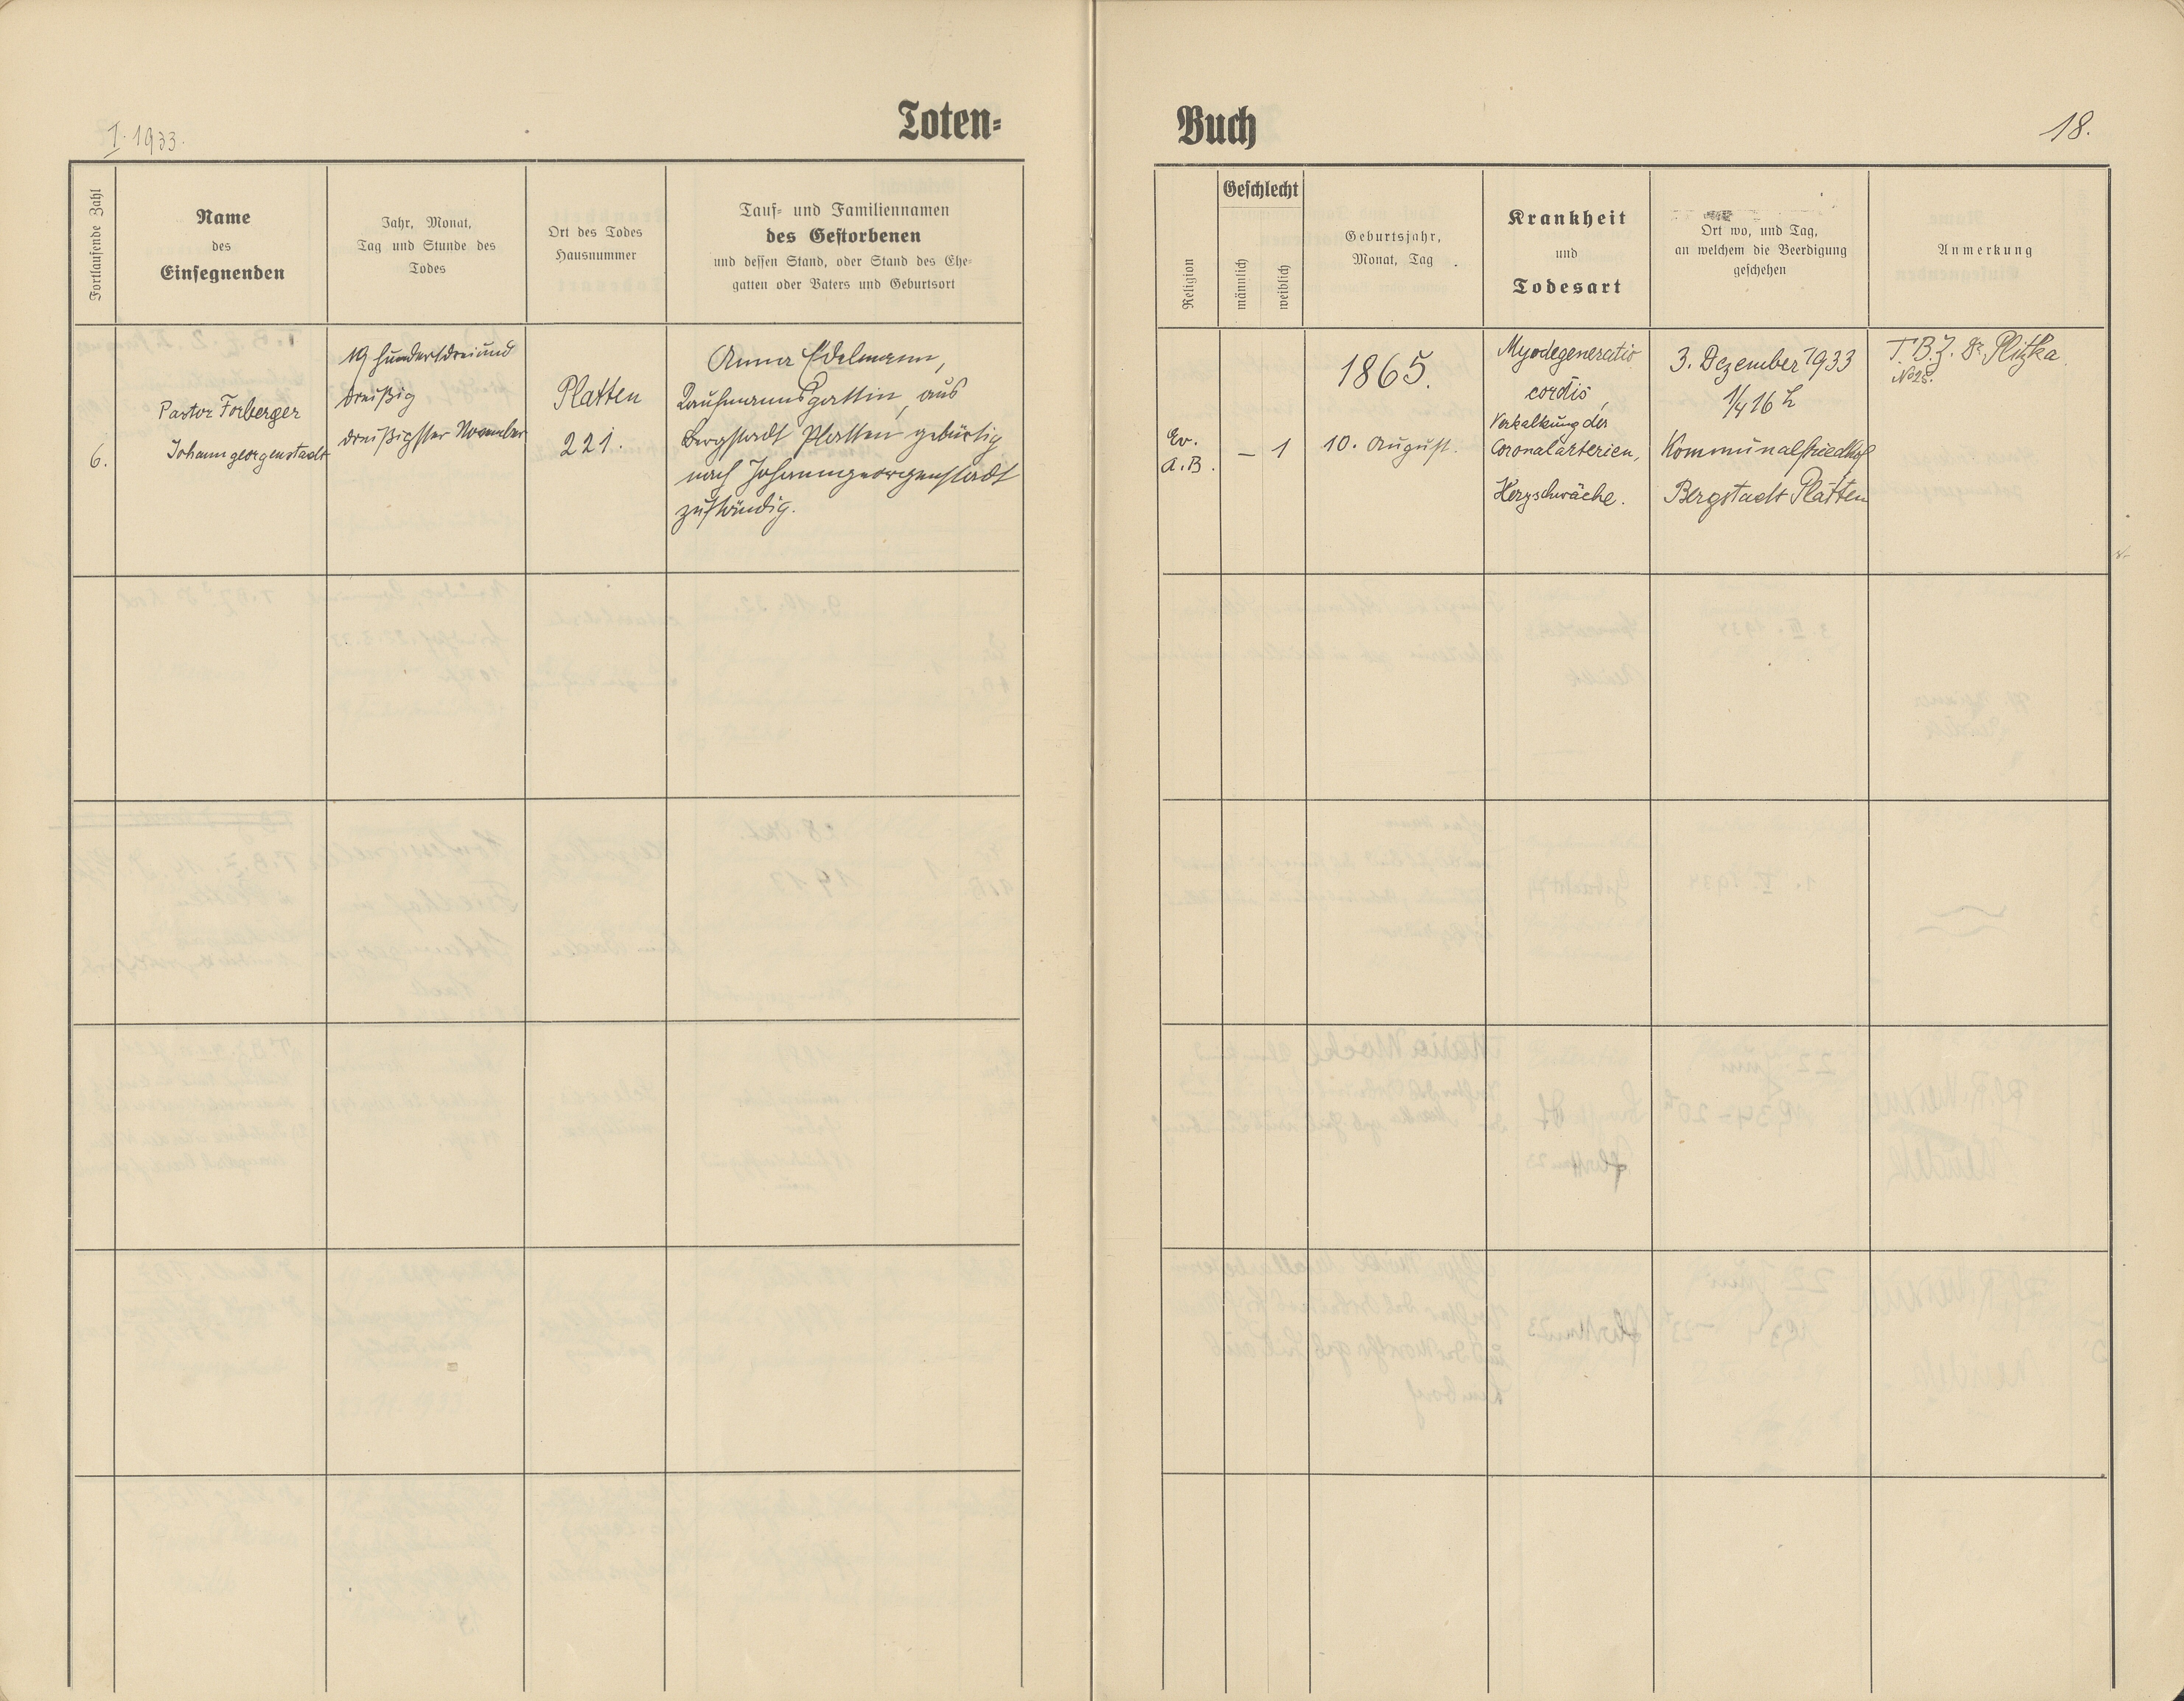 I. 1933.
Toten=
Buch
18.
Fortlaufende Zahl
Name
des
Einsegnenden
Jahr, Monat,
Tag und Stunde des
Todes
Ort des Todes
Hausnummer
Tauf= und Familiennamen
des Gestorbenen
und dessen Stand, oder Stand des Ehe=
gatten oder Vaters und Geburtsort
Religion
Geschlecht
männlich
weiblich
Geburtsjahr,
Monat, Tag
Krankheit
und
Todesart
Ort wo, und Tag,
an welchem die Beerdigung
geschehen
Anmerkung
6.
Pastor Forberger
Johanngeorgenstadt
19 hundertdreiund
dreißig
dreißigster November
Platten
221.
Anna Edelmann,
Kaufmannsgattin, aus
Bergstadt Platten gebürtig
nach Johanngeorgenstadt
zuständig.
Ev.
A.B.
– 1
1865.
10. August.
Myodegeneratio
cordis,
Verkalkung der
Coronalarterien,
Herzschwäche.
3. Dezember 1933
1/4 16 h
Kommunalfriedhof
Bergstadt Platten
T.B.Z. Dr. Plitzka
No 28.